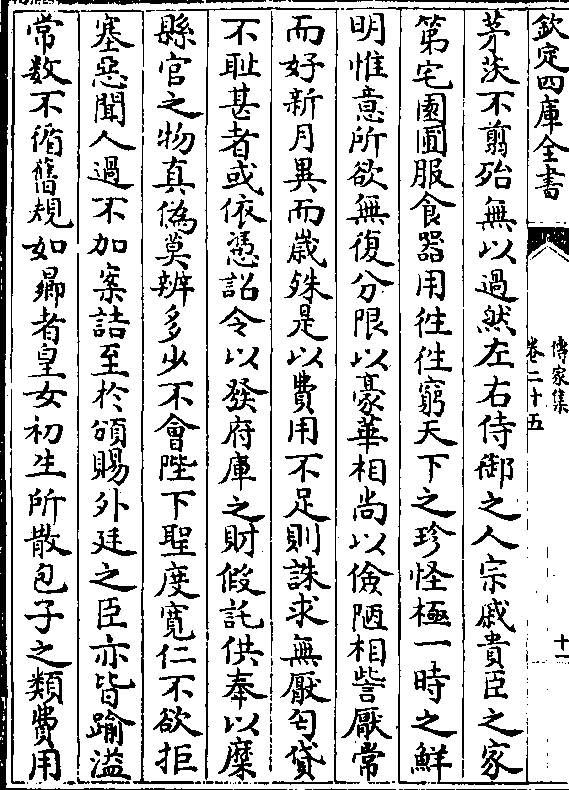 欽定四庫全書
傳家集
卷二十五
十一
茅茨不翦殆無以過然左右侍御之人宗戚貴臣之家
第宅園圃服食器用徃徃窮天下之珍怪極一時之鮮
明惟意所欲無復分限以豪華相尚以儉陋相訾厭常
而好新月異而嵗殊是以費用不足則誅求無厭匄貸
不耻甚者或依憑詔令以發府庫之財假託供奉以糜
縣官之物真偽莫辨多少不會陛下聖度寛仁不欲拒
塞惡聞人過不加案詰至於頒賜外廷之臣亦皆踰溢
常數不循舊規如曏者皇女初生所散包子之類費用